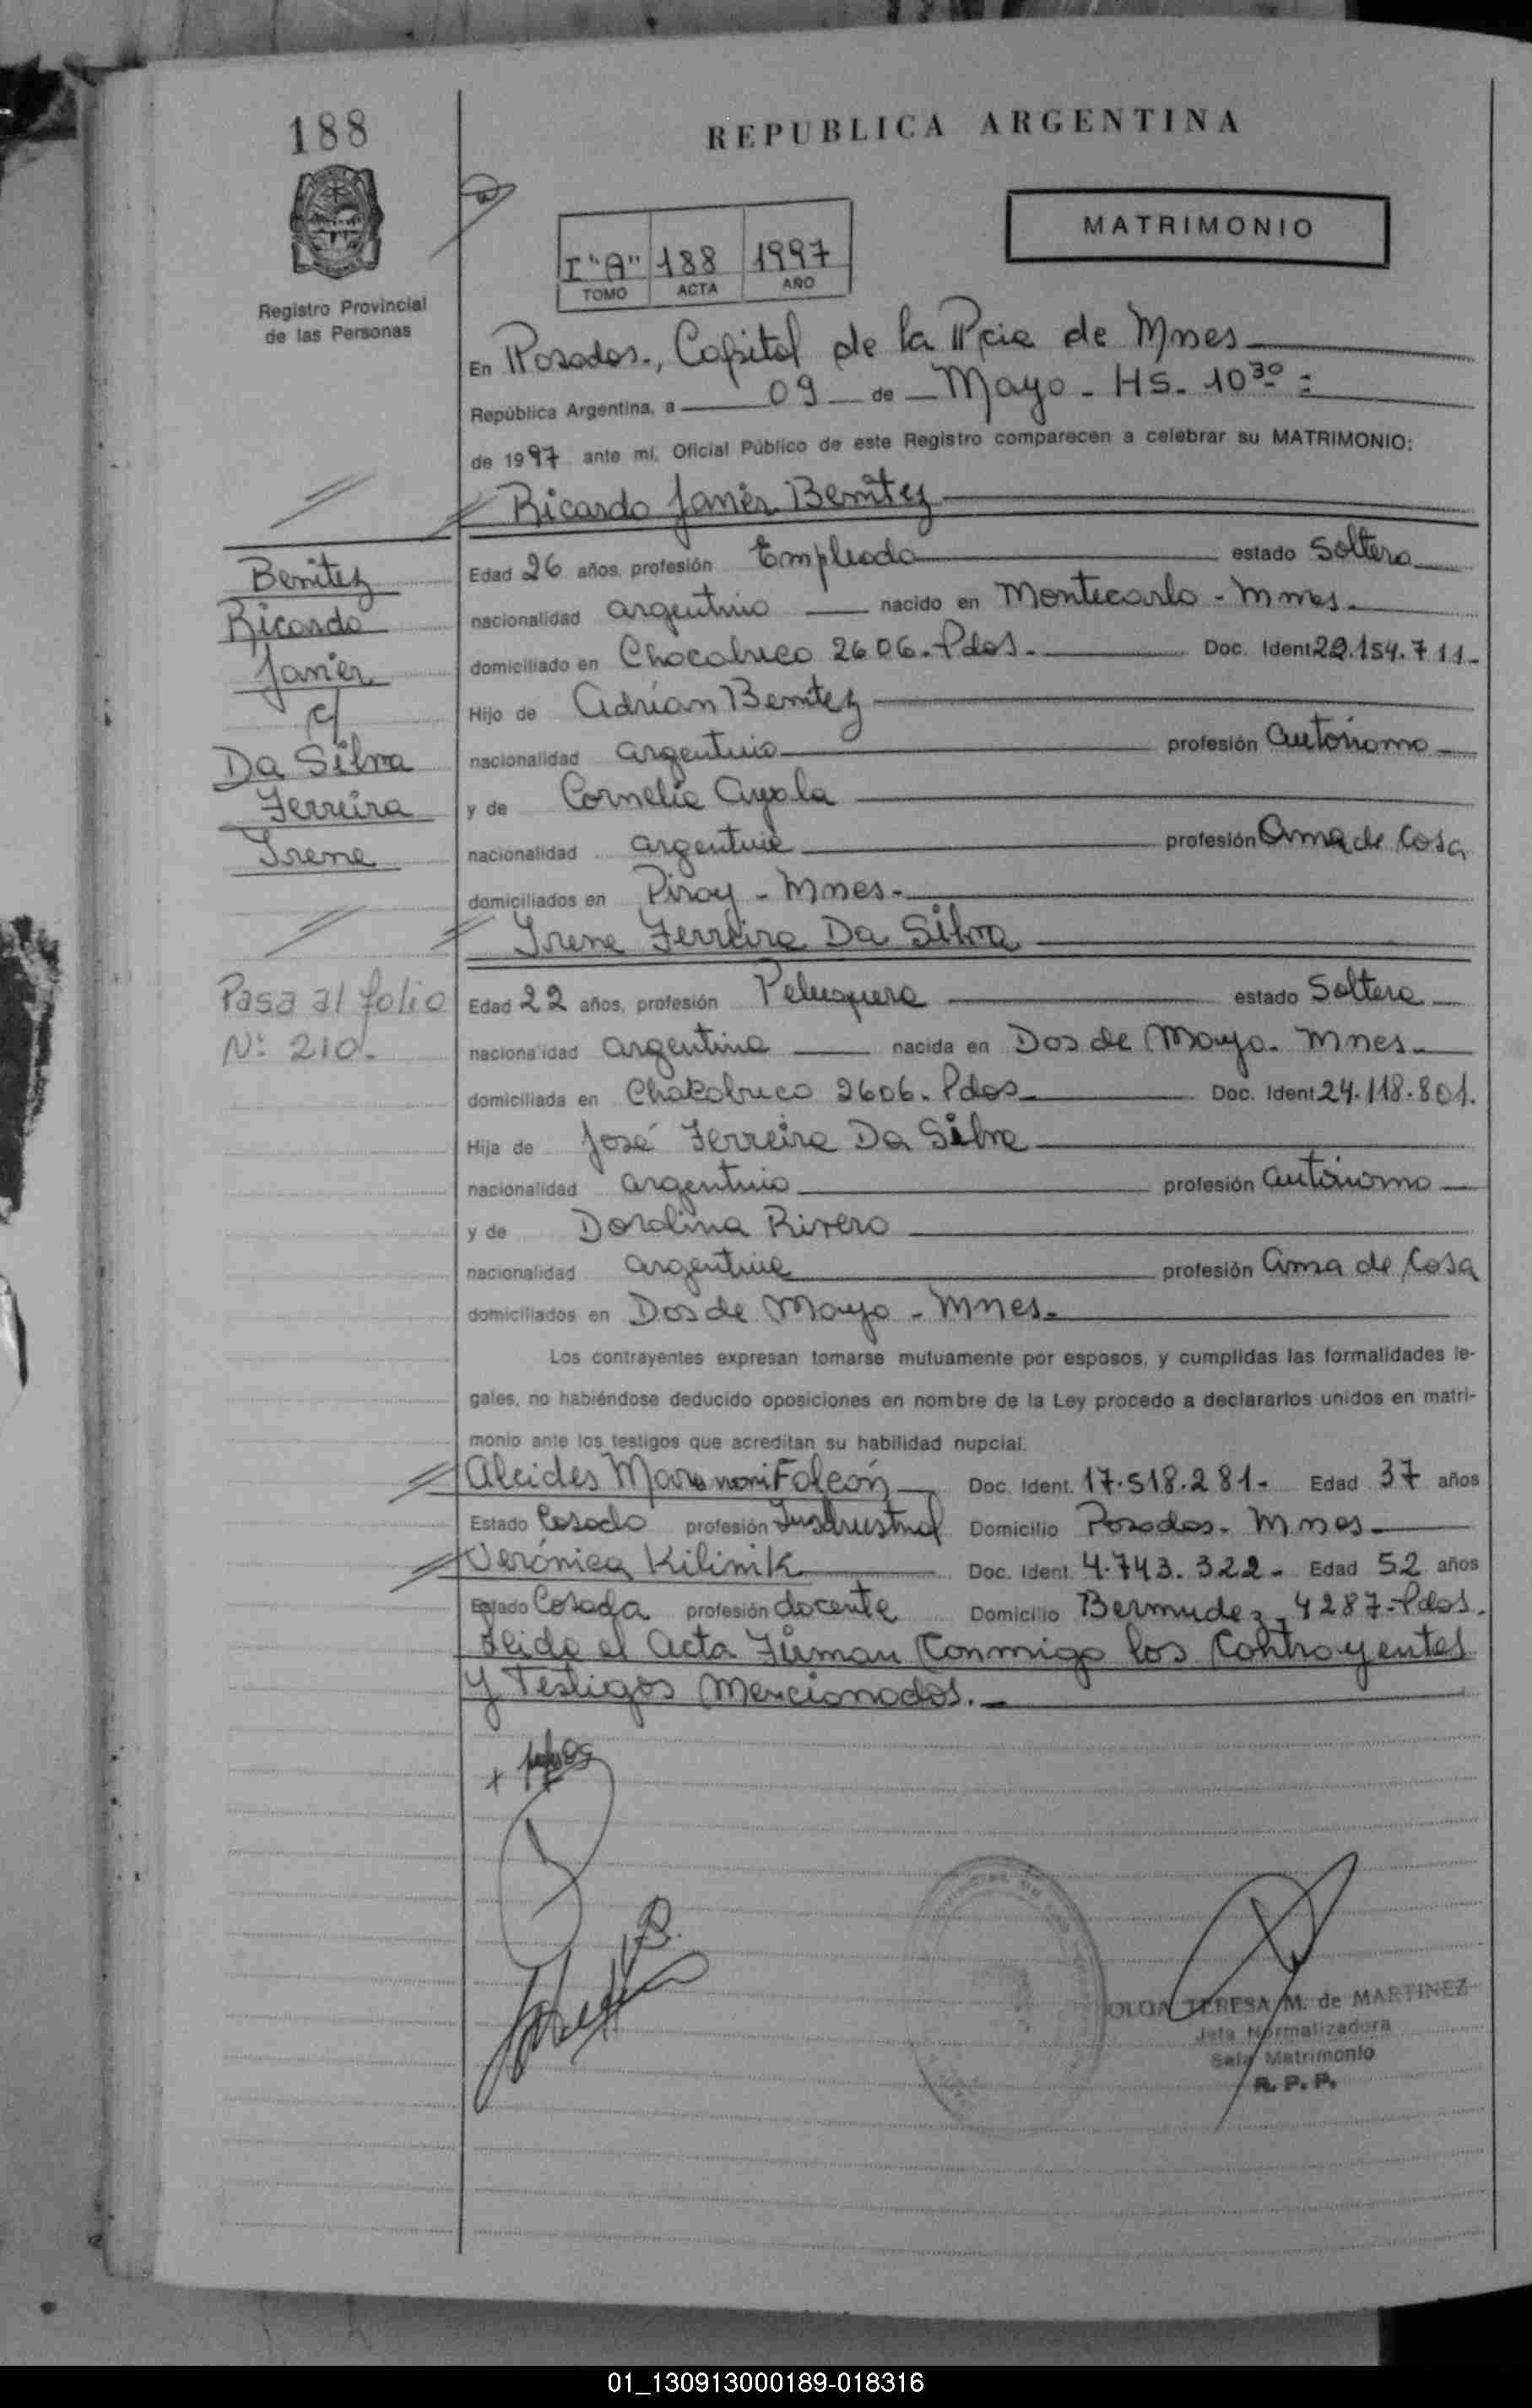 188
REPUBLICA ARGENTINA
MATRIMONIO
I "A" 188 1997
TOMO ACTA AÑO
Registro Provincial
de las Personas
En Posadas., Capital de la Pcia de Mnes
República Argentina, a 09 de Mayo - HS. 10 30 =
de 1997 ante mi, Oficial Público de este Registro comparecen a celebrar su MATRIMONIO:
Ricardo Javier Benítez
Edad 26 años, profesión Empleado estado Soltero
nacionalidad argentino nacido en Montecarlo - Mnes.
domiciliado en Chacabuco 2606. Pdas. Doc. Ident 22.154.711.
Hijo de Adrían Benitez
nacionalidad argentino profesión autónomo
y de Cornelia Ayala
nacionalidad argentina profesión Ama de Casa
domiciliados en Piray - Mnes.
Irene Ferreira Da Silva
Edad 22 años, profesión Peluquera estado Soltera
nacionalidad argentina nacida en Dos de Mayo. Mnes.
domiciliada en Chacabuco 2606. Pdas Doc. Ident 24.118.801.
Hija de José Ferreira Da Silva
nacionalidad argentino profesión autónomo
y de Doralina Rivero
nacionalidad argentina profesión ama de Casa
domiciliados en Dos de Mayo - Mnes.
Los contrayentes expresan tomarse mutuamente por esposos, y cumplidas las formalidades le-
gales, no habiéndose deducido oposiciones en nombre de la Ley procedo a declararlos unidos en matri-
monio ante los testigos que acreditan su habilidad nupcial.
Alcides Falcón Doc. Ident. 17.518.281. Edad 37 años
Estado Casado profesión Industrial Domicilio Posadas. Mnes.
Verónica Kilinik Doc. Ident. 4.743.322. Edad 52 años
Estado Casada profesión docente Domicilio Bermudez 4287-Pdas.
Leida el Acta Firman Conmigo los Contrayentes
y Testigos Mencionados.
Benitez
Ricardo
Javier
c/
Da Silva
Ferreira
Irene
Pasa al folio
N: 210.
OLGA TERESA M. de MARTINEZ
Jefa Normalizadora
Sala Matrimonio
R. P. P.
01_130913000189-018316